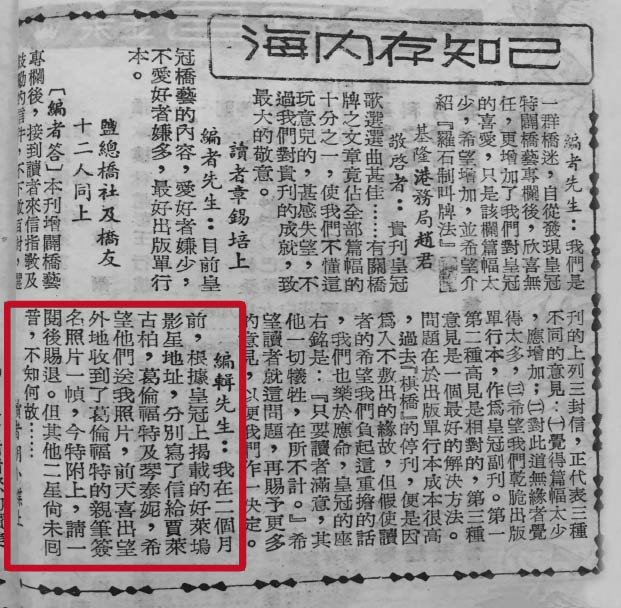 海內存知己
編者先生：我們是
一群橋迷，自從發現皇冠
特闢橋藝專欄後，欣喜無
任，更增加了我們對皇冠
的喜愛，只是該欄篇幅太
少，希望增加，並希望介
紹『羅石制叫牌法』
基隆港務局趙君
敬啓者：貴刊皇冠
歌選選曲甚佳……有關橋
牌之文章竟佔全部篇幅的
十分之一，使我們不懂這
玩意兒的，甚感失望，不
過我們對貴刊的成就，致
最大的敬意。
讀者章錫培上
編者先生：目前皇
冠橋藝的內容，愛好者嫌少，
不愛好者嫌多，最好出版單行
本。
鹽總橋社及橋友
十二人同上
〔編者答〕本刊增闢橋藝
專欄後，接到讀者來信指教及
鼓勵的信件，不下數百封，選
刊的上列三封信，正代表三種
不同的意見：㈠覺得篇幅太少
，應增加；㈡對此道無緣者覺
得太多，㈢希望我們乾脆出版
單行本，作爲皇冠副刊。第一
第二種高見是相對的，第三種
意見是一個最好的解決方法。
問題在於出版單行本成本很高
，過去『棋橋』的停刊，便是因
爲入不敷出的緣故，但假使讀
者的希望我們負起這重擔的話
，我們也樂於應命，皇冠的座
右銘是：『只要讀者滿意，其
他一切犧牲，在所不計。』希
望讀者就這問題，再賜予更多
的意見，以便我們作一決定。
編輯先生：我在二個月
前，根據皇冠上揭載的好萊塢
影星地址，分別寫了信給賈萊
古柏，葛倫福特及琴泰妮，希
望他們送我照片，前天喜出望
外地收到了葛倫福特的親筆簽
名照片一幀，今特附上，請一
閱後賜退。但其他二星尙未囘
音，不知何故……